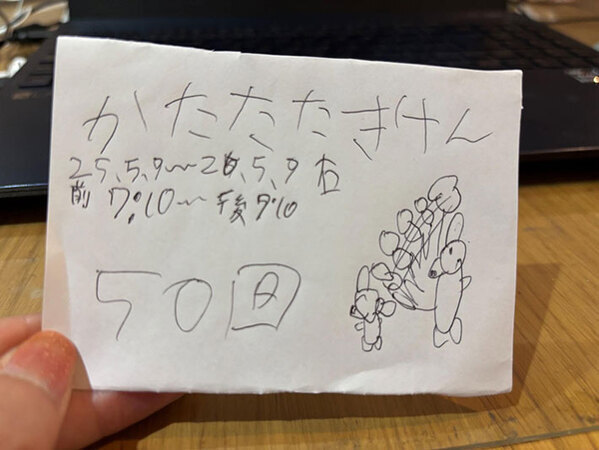 かたたたきけん
25、5、9〜26、5、9
前 7:10〜午後9:10
50回